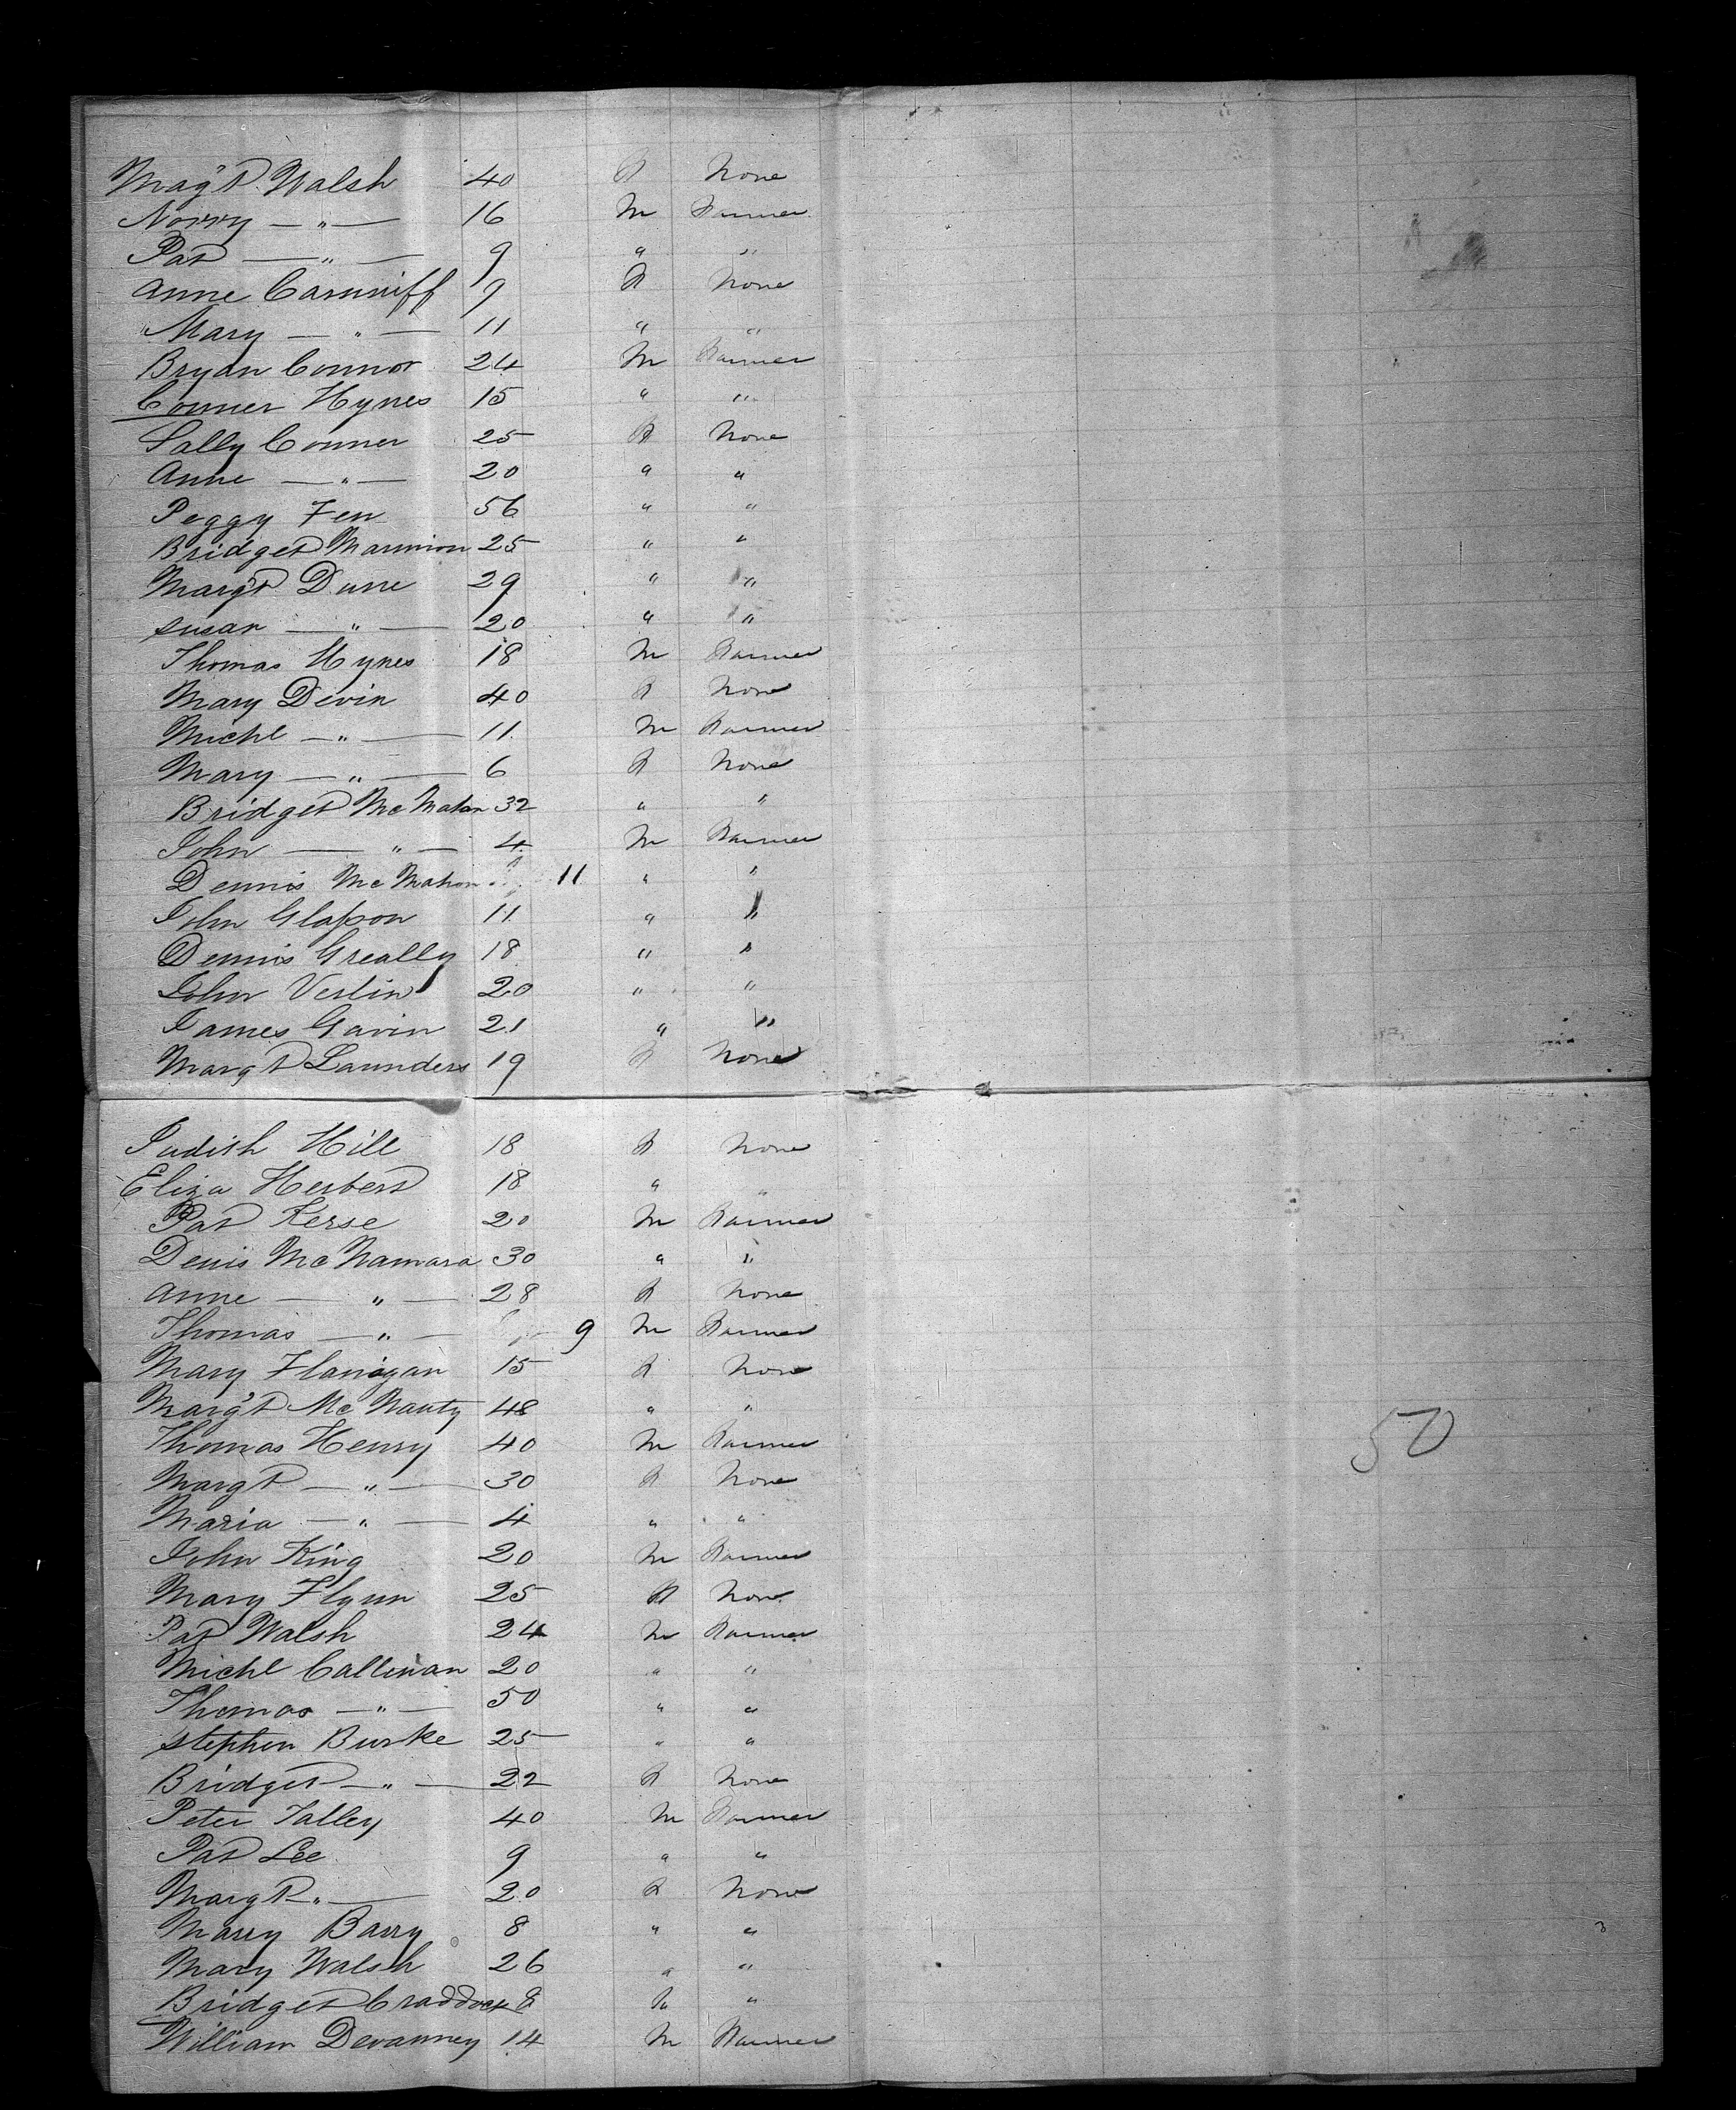 Marg't Walsh 40 F None
Norry — " — 16 M Farmer
Pat — " — 9 " "
Anne Carmiff 9 F None
Mary — " — 11 " "
Bryan Connor 24 M Farmer
Conner Hynes 15 " "
Sally Conner 25 F None
Anne — " — 20 " "
Peggy Fen 56 " "
Bridget Mannion 25 " "
Marg't Dunne 29 " "
Susan — " — 20 " "
Thomas Hynes 18 M Farmer
Mary Devin 40 F None
Michl — " — 11 M Farmer
Mary — " — 6 F None
Bridget McMahon 32 " "
John — " — 4 M Farmer
Dennis McMahon 11 " "
John Glasson 11 " "
Dennis Greally 18 " "
John Verlin 20 " "
James Gavin 21 " "
Margt Saunders 19 F None
Judith Hill 18 F None
Eliza Herbert 18 " "
Pat Kerse 20 M Farmer
Denis McNamara 30 " "
Anne — " — 28 F None
Thomas — " — 9 M Farmer
Mary Flanigan 15 F None
Marg't McNauty 48 " "
Thomas Henry 40 M Farmer
Margt — " — 30 F None
Maria — " — 4 " "
50
John King 20 M Farmer
Mary Flynn 25 F None
Pat Walsh 24 M Farmer
Michl Callinan 20 " "
Thomas — " — 50 " "
Stephen Burke 25 " "
Bridget — " — 22 F None
Peter Talley 40 M Farmer
Pat Lee 9 " "
Margt — " — 20 F None
Marry Barry 8 " "
Mary Walsh 26 " "
Bridget Craddock 8 F "
William Devanney 14 M Farmer